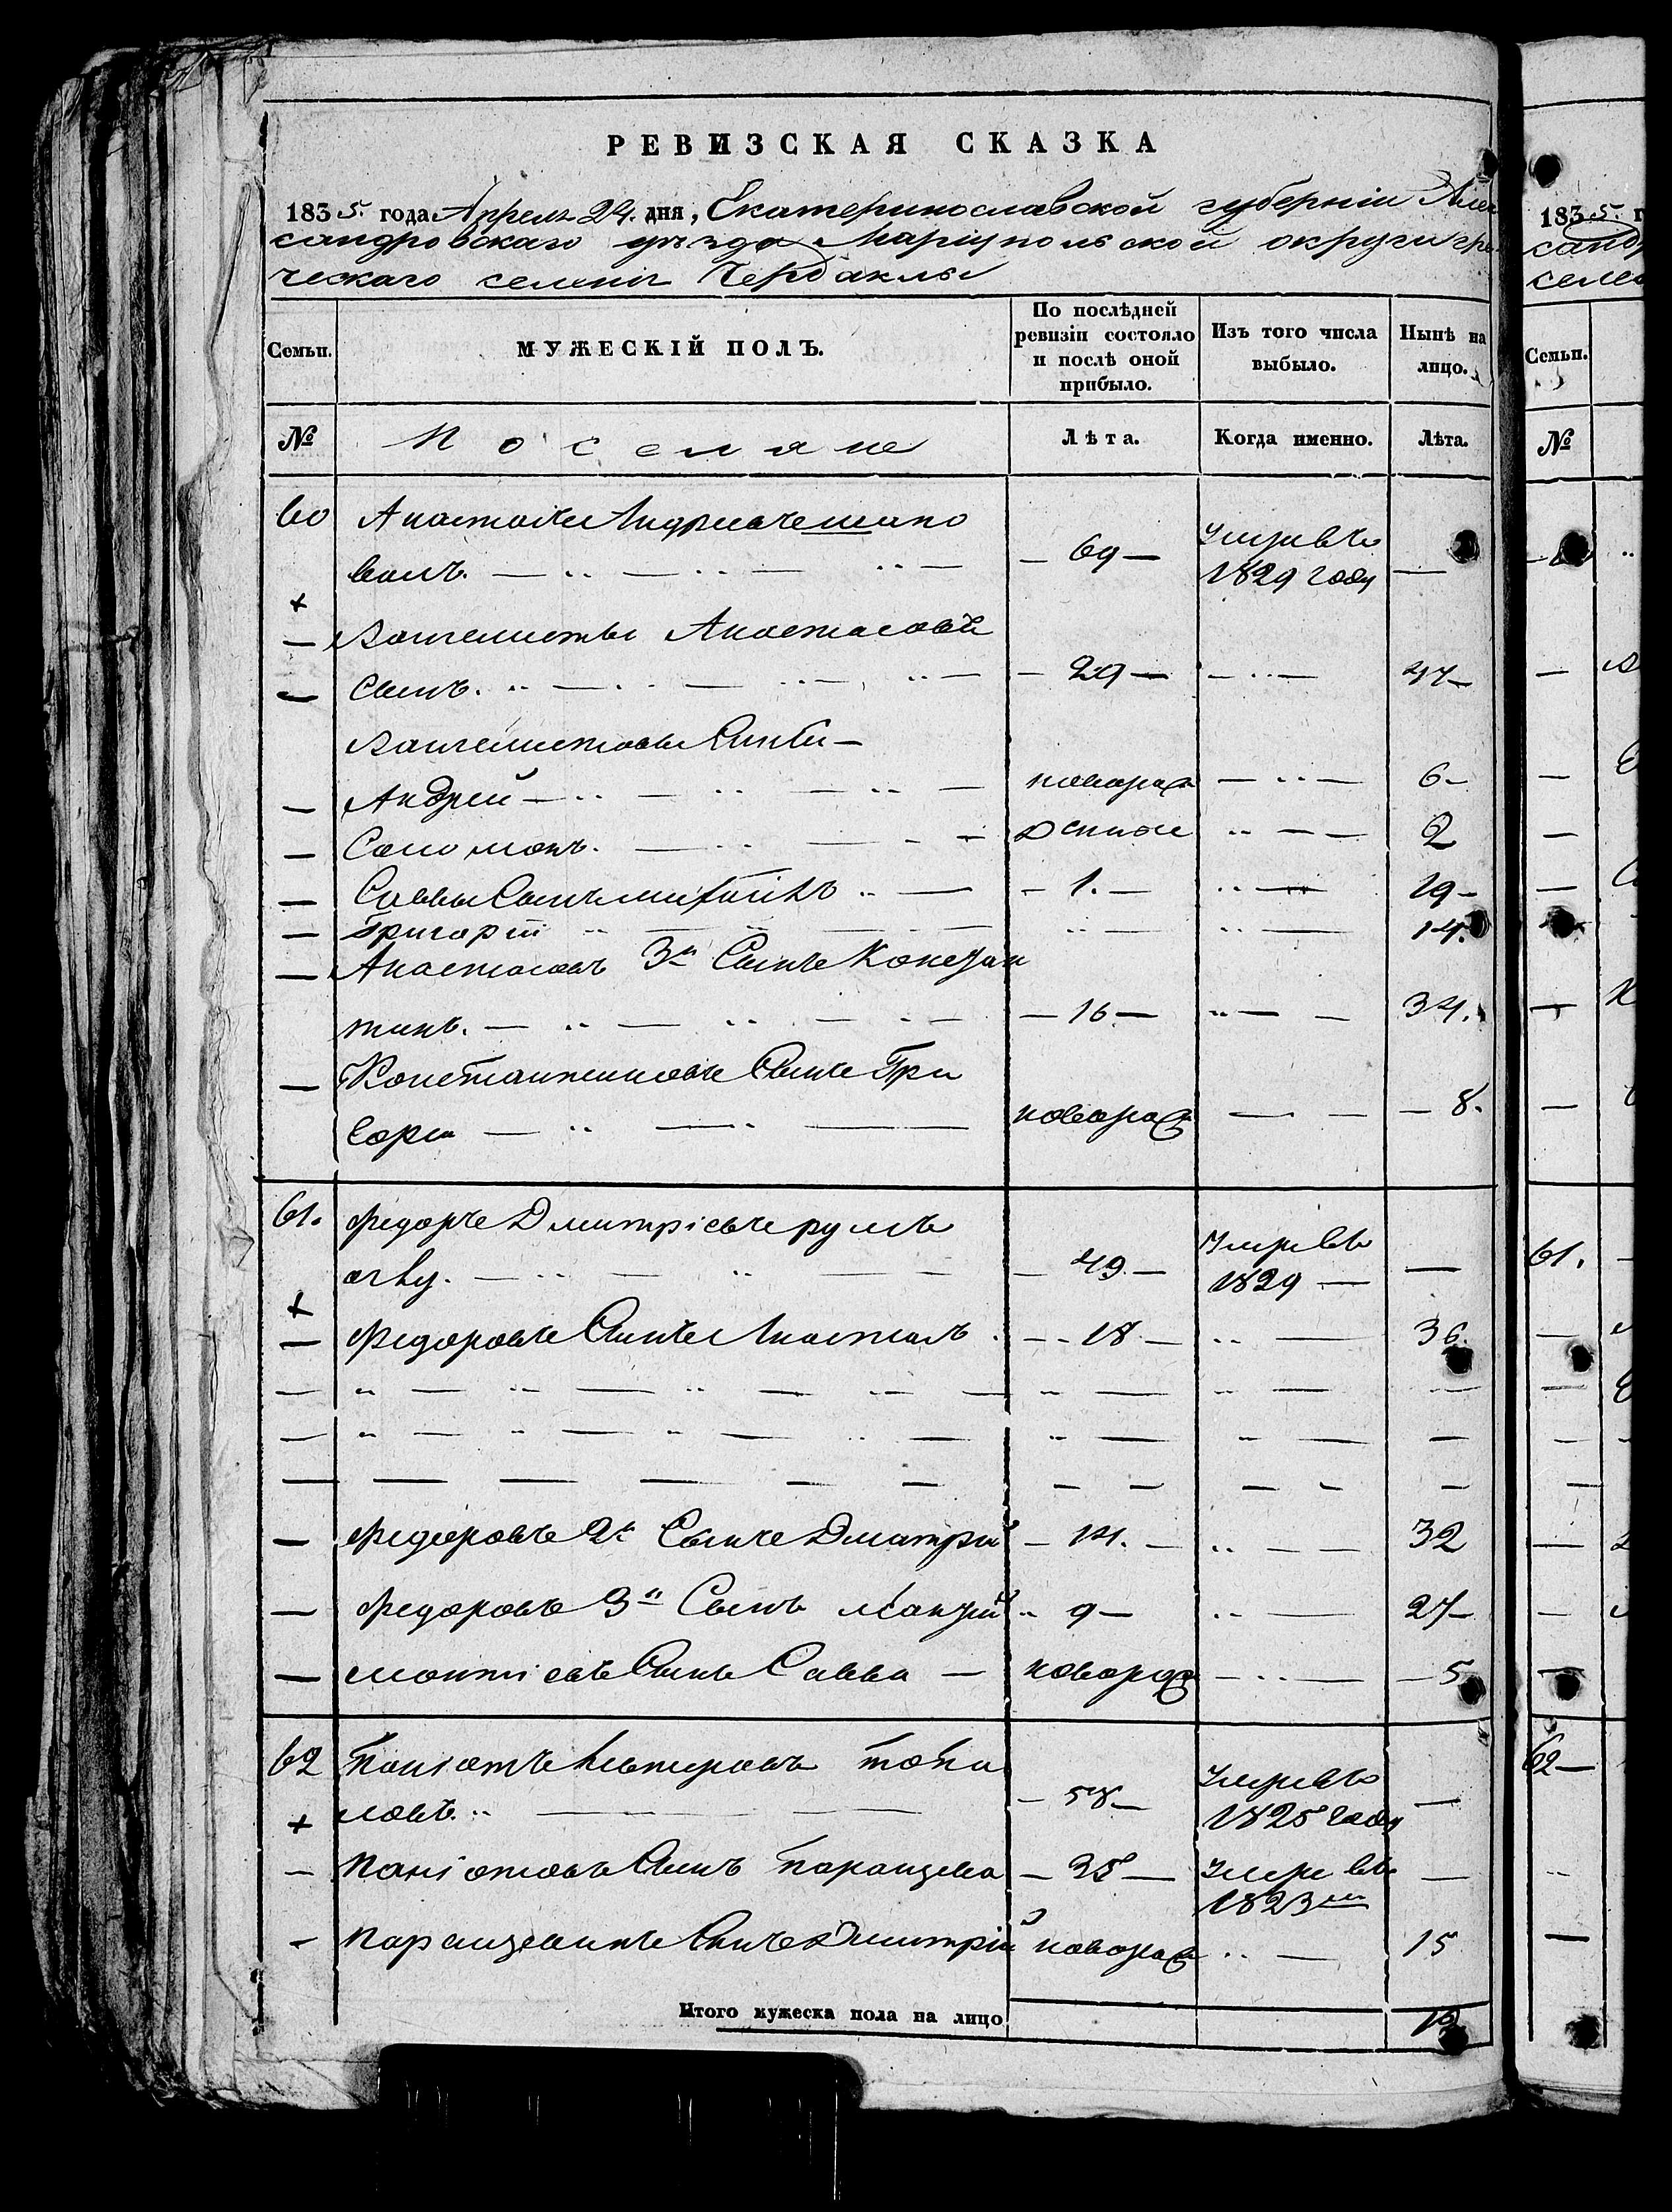 РЕВИЗСКАЯ СКАЗКА
1835. года Апреля 24. дня, Екатеринославской губерніи Алек
сандровскаго уезда Маріупольской округи гре
ческаго селенія Чердаклы
Семьи. МУЖЕСКІЙ ПОЛЪ. По послѣдней ревизіи состояло и послѣ оной прибыло. Изъ того числа выбыло. Нынѣ на лицо.
№ Поселяне Лѣта. Когда именно. Лѣта.
60 Анастасъ Андреевъ шапо
валъ. — 69 — умръ въ 1829 году —
Анастасовъ
сынъ. — 29 — 47
Сынъ
Андрей — новорож 6
Соломонъ. 2
Саввы Сынъ — 1. — 19
Григорій 14.
Анастасовъ 3й Сынъ Констан
тинъ. — 16 — 34.
Константиновъ Сынъ Гри
горій новорож — 8.
61. Федоръ Дмитріевъ
— 49 — умръ въ 1829 —
Федоровъ Сынъ Анастасъ. — 18 — 36.
Федоровъ 2й Сынъ Дмитрій — 14. — 32
Федоровъ 3й Сынъ 9 — 27
Сынъ Савва — новорож — 5
62 Паніотъ топа
ловъ. — 58 — умръ въ 1825 году —
Паніотовъ Сынъ Паращева — 25 — умръ въ 1823м —
Паращевинъ Сынъ Дмитрій новорож 15
Итого мужеска пола на лицо 12
183 5. г
санд
селе
Семьи.
№
61.
62 —